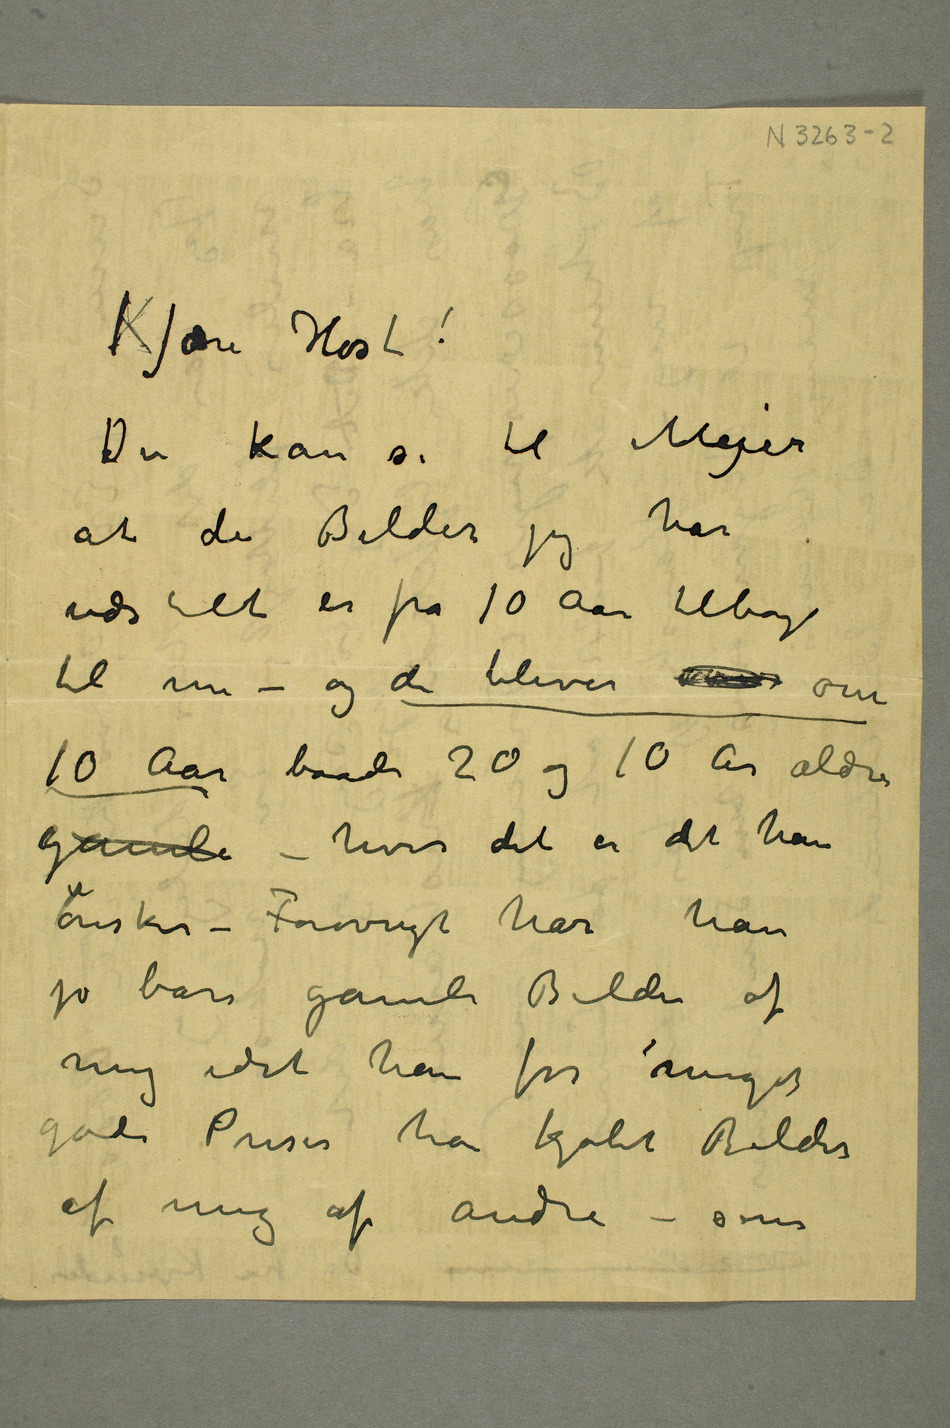 N 3263-2
Kjære Høst!
Du kan si til Mejer
at de Bilder jeg har
udstilt er fra 10 Aar tilbage
til nu – og de bliver om
10 Aar baade 20 og 10 Ar ældre
gamle – hvis det er det han
ønsker – Forøvrigt har han
jo bare gamle Bilder af
mig idet han for meget
gode Priser har kjøbt Bilder
af mig af andre – som